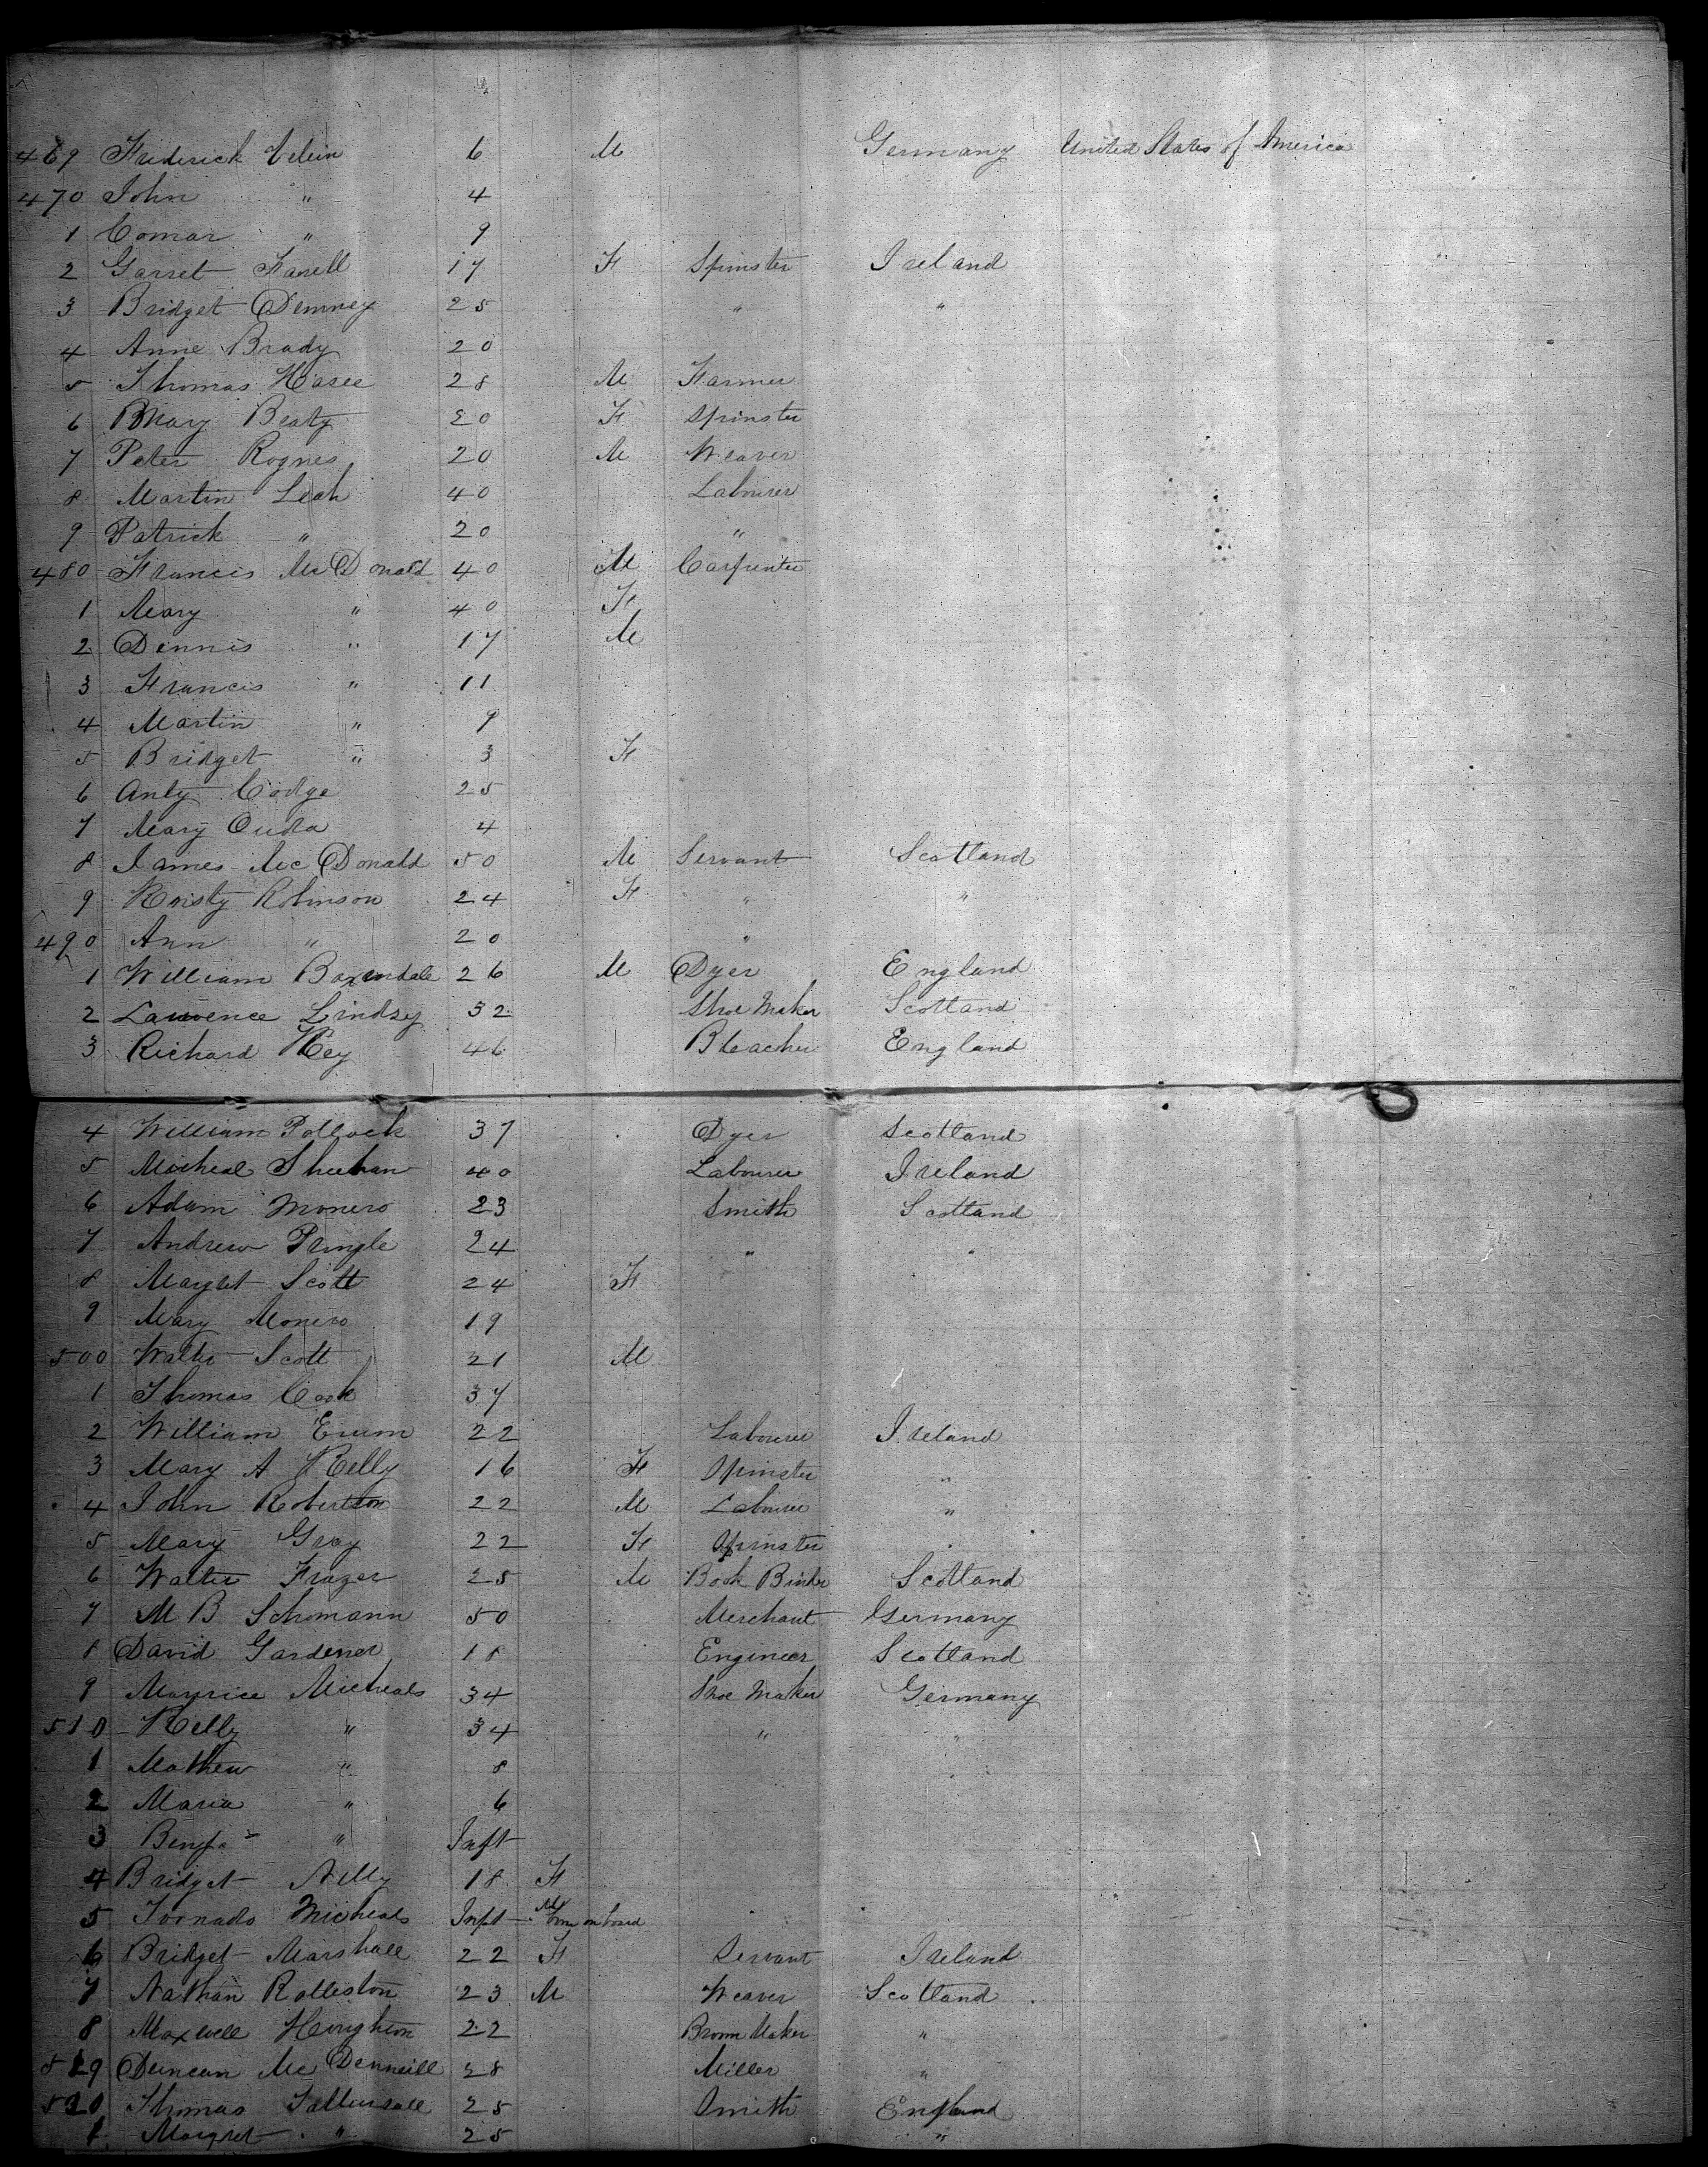 469 Frederick 6 M Germany United States of America
470 John " 4
1 Comar " 9
2 Garret Farrell 17 F Spinster Ireland
3 Bridget Demney 25 " "
4 Anne Brady 20
5 Thomas Kasee 28 M Farmer
6 Mary Beaty 20 F Spinster
7 Peter Rognes 20 M Weaver
8 Martin Leah 40 Labourer
9 Patrick " 20 "
480 Francis McDonald 40 M Carpenter
1 Mary " 40 F
2 Dennis " 17 M
3 Francis " 11
4 Martin " 9
5 Bridget " 3 F
6 Anty Codge 25
7 Mary 4
8 James McDonald 50 M Servant Scotland
9 Kristy Robinson 24 F " "
490 Ann " 20 "
1 William Baxendale 26 M Dyer England
2 Lawrence Lindsy 32 Shoe Maker Scotland
3 Richard Key 46 Bleacher England
4 William Pollock 37 Dyer Scotland
5 Micheal Sheehan 40 Labourer Ireland
6 Adam Monero 23 Smith Scotland
7 Andrew Pringle 24 " "
8 Margret Scott 24 F
9 Mary Monero 19
500 Walter Scott 21 M
1 Thomas Cook 37
2 William Erum 22 Labourer Ireland
3 Mary A Kelly 16 F Spinster "
4 John Robertson 22 M Labourer "
5 Mary Gray 22 F Spinster "
6 Walter Frazer 25 M Book Binder Scotland
7 M B Schomann 50 Merchant Germany
8 David Gardener 18 Engineer Scotland
9 Mayrice Micheals 34 Shoe Maker Germany
510 Kelly " 34 " "
1 Mathew " 8
2 Maria " 6
3 " Inft
4 Bridget Nelly 18 F
5 Tornado Micheals Inft M Born on board
6 Bridget Marshall 22 F Servant Ireland
7 Nathan Rolleston 23 M Weaver Scotland
8 Maxwell Houghton 22 Broom Maker "
519 Duncan McDenneill 28 Miller "
520 Thomas Tattersall 25 Smith England
1 Margret " 25 "